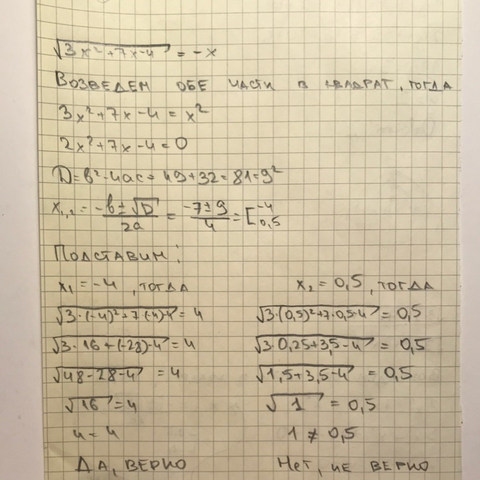 √3x²+7x-4 = -x
Возведем обе части в квадрат, тогда
3x²+7x-4=x²
2x²+7x-4=0
D=b²-4ac=49+32=81=9²
x₁,₂ = -b±√D / 2a = -7±9 / 4 = [-4 0,5
Подставим:
x₁=-4, тогда
√3·(-4)²+7(-4)-4 = 4
√3·16+(-28)-4 = 4
√48-28-4 = 4
√16 = 4
4=4
Да, верно
x₂=0,5, тогда
√3·(0,5)²+7·0,5-4 = 0,5
√3·0,25+3,5-4 = 0,5
√1,5+3,5-4 = 0,5
√1 = 0,5
1≠0,5
Нет, не верно